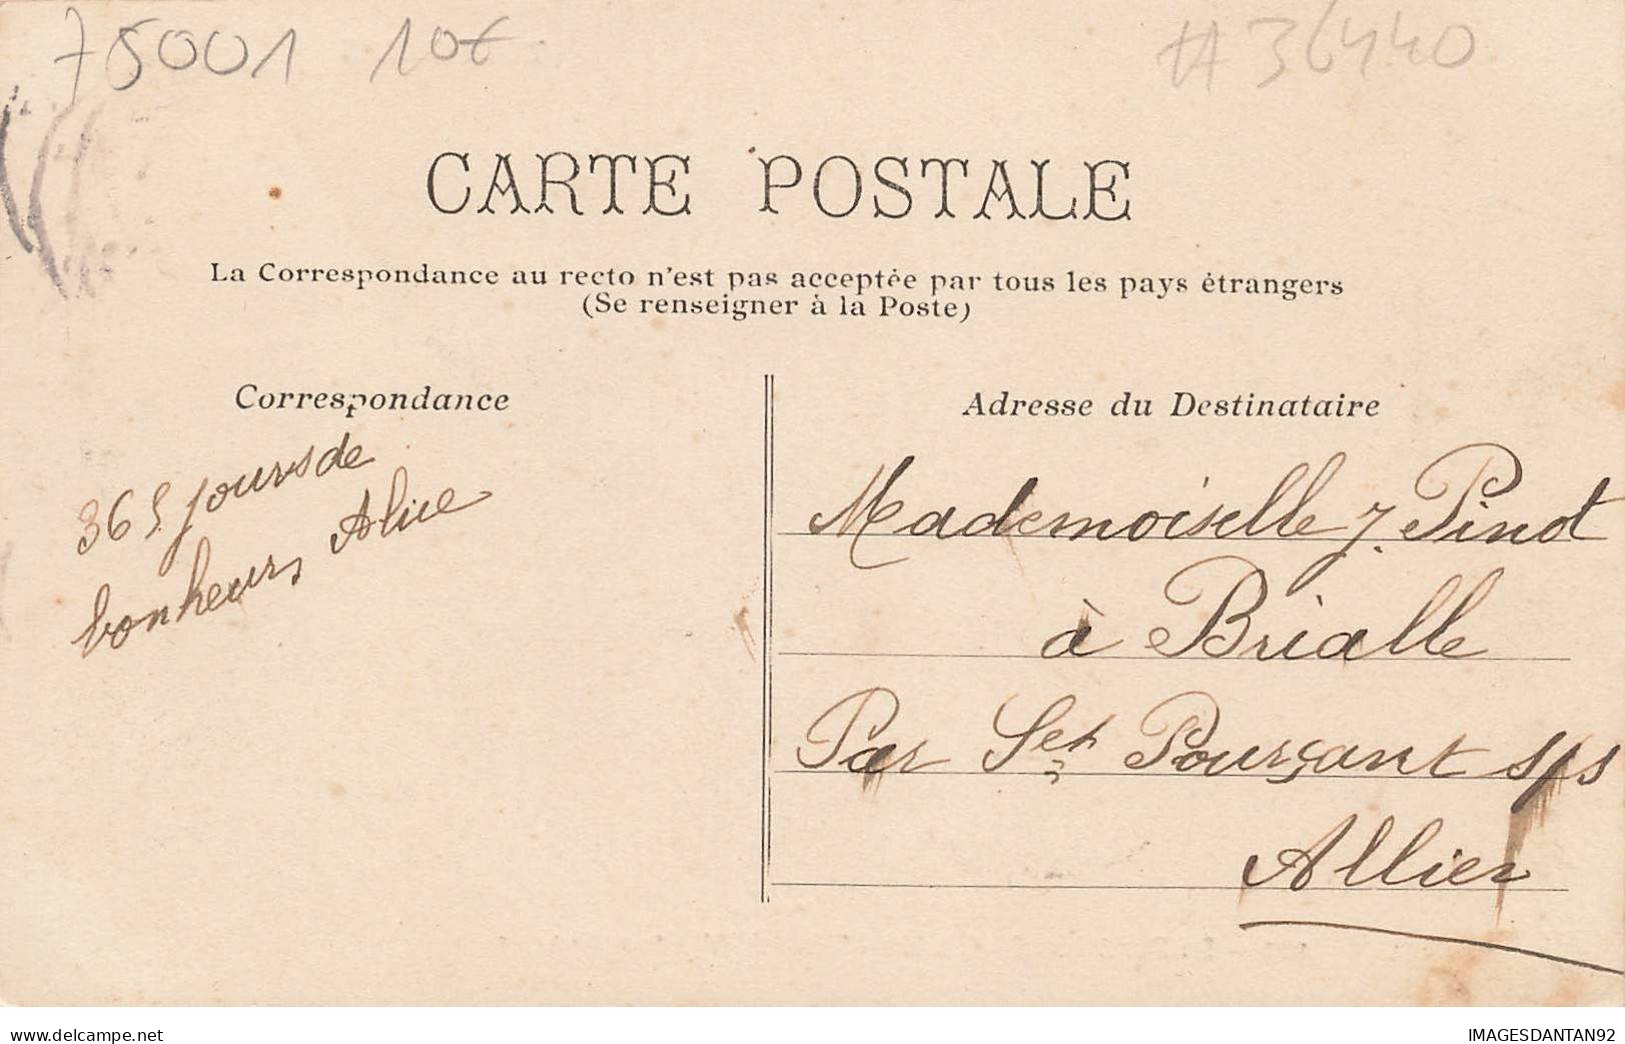 75001 10€ #36440
CARTE POSTALE
La Correspondance au recto n'est pas acceptée par tous les pays étrangers
(Se renseigner à la Poste)
Correspondance
365 jours de
bonheurs Alice
Adresse du Destinataire
Mademoiselle J. Pinot
à Brialle
Par St Pourçant s/s
Allier
www.delcampe.net
IMAGESDANTAN92